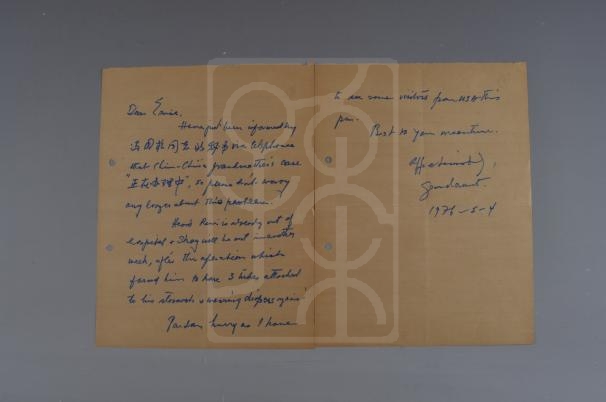 Dear
Have just been informed by
via telephone
that Chin-Chin grandmother's case
"正在办理中", so please don't worry
any longer about this problem.
is already out of
hospital & will be out in another
week, after the operation which
forced him to have 3 tubes attached
to his stomach & wearing diapers again!
Pardon hurry as I have
to see some visitors from USA this
pm.
Best to you meantime.
Affectionately,
1976-5-4